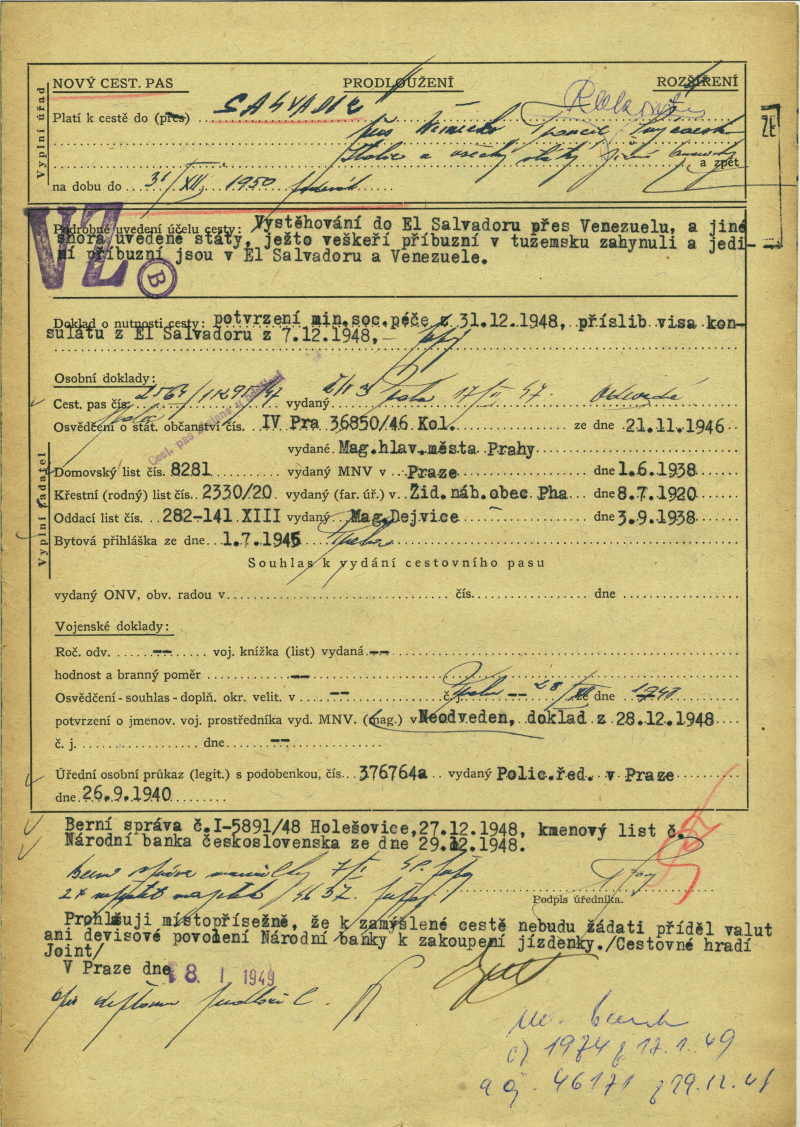 NOVÝ CEST. PAS PRODLOUŽENÍ ROZŠÍŘENÍ
Vyplní úřad
Platí k cestě do (přes) SALVADOR
přes Německo
Italie a všechny státy a zpět
na dobu do 31/XII. 1950
ZE
VZ
B
Podrobné uvedení účelu cesty: Vystěhování do El Salvadoru přes Venezuelu, a jiné
shora uvedené státy, ježto veškeří příbuzní v tuzemsku zahynuli a jedi-
ní příbuzní jsou v El Salvadoru a Venezuele.
Doklad o nutnosti cesty: potvrzení min.soc.péče z 31.12.1948, příslib visa kon-
sulátu z El Salvadoru z 7.12.1948,-
Vyplní žadatel
Osobní doklady:
Cest. pas čís. vydaný
Osvědčení o stát. občanství čís. IV Pra 36850/46 Kol. ze dne 21.11.1946
vydané Mag.hlav.města Prahy
Domovský list čís. 8281 vydaný MNV v Praze dne 1.6.1938
Křestní (rodný) list čís. 2330/20 vydaný (far. úř.) v Žid.náb.obec Pha dne 8.7.1920
Oddací list čís. 282-141 XIII vydaný Mag.Dejvice dne 3.9.1938
Bytová přihláška ze dne 1.7.1945
Souhlas k vydání cestovního pasu
vydaný ONV, obv. radou v čís. dne
Vojenské doklady:
Roč. odv. -- voj. knížka (list) vydaná --
hodnost a branný poměr --
Osvědčení - souhlas - doplň. okr. velit. v -- č. j. -- dne
potvrzení o jmenov. voj. prostředníka vyd. MNV. (mag.) v Neodveden, doklad z 28.12.1948
č. j. dne --
Úřední osobní průkaz (legit.) s podobenkou, čís. 376764a vydaný Polic.řed. v Praze
dne 26.9.1940
Berní správa č.I-5891/48 Holešovice,27.12.1948, kmenový list č.
Národní banka československa ze dne 29.12.1948.
Podpis úředníka.
Prohlašuji místopřísežně, že k zamýšlené cestě nebudu žádati příděl valut
ani devisové povolení Národní banky k zakoupení jízdenky./Cestovné hradí
Joint/
V Praze dne 8. I 1949
čj 1974 z 17.1.49
a čj. 46171 z 29.12.48